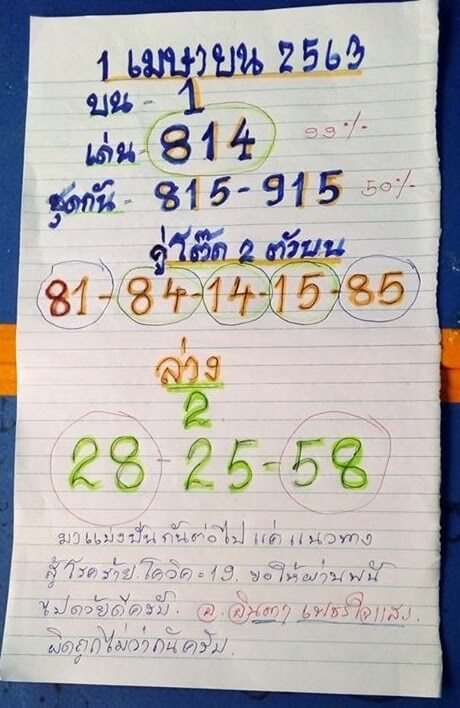 1 เมษายน 2563
บน - 1
เด่น - 814 99%
ชุดกัน - 815 - 915 50%
คู่โต๊ด 2 ตัวบน
81 - 84 - 14 - 15 - 85
ล่าง
2
28 - 25 - 58
มาแบ่งปันกันต่อไป แค่ แนวทาง
สู้โรคร้าย โควิด = 19. ขอให้ผ่านพ้น
ไปด้วยดีครับ. อ.
ผิดถูกไม่ว่ากันครับ.